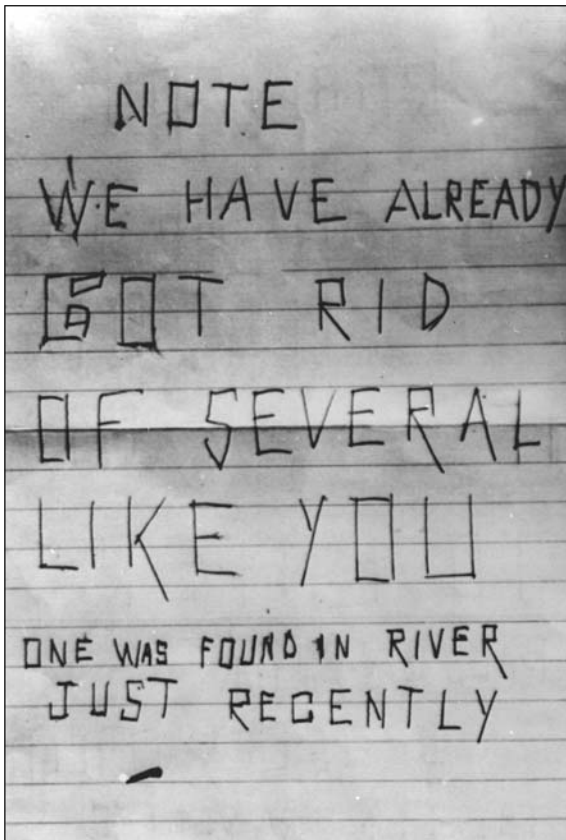 NOTE
WE HAVE ALREADY
GOT RID
OF SEVERAL
LIKE YOU
ONE WAS FOUND IN RIVER
JUST RECENTLY